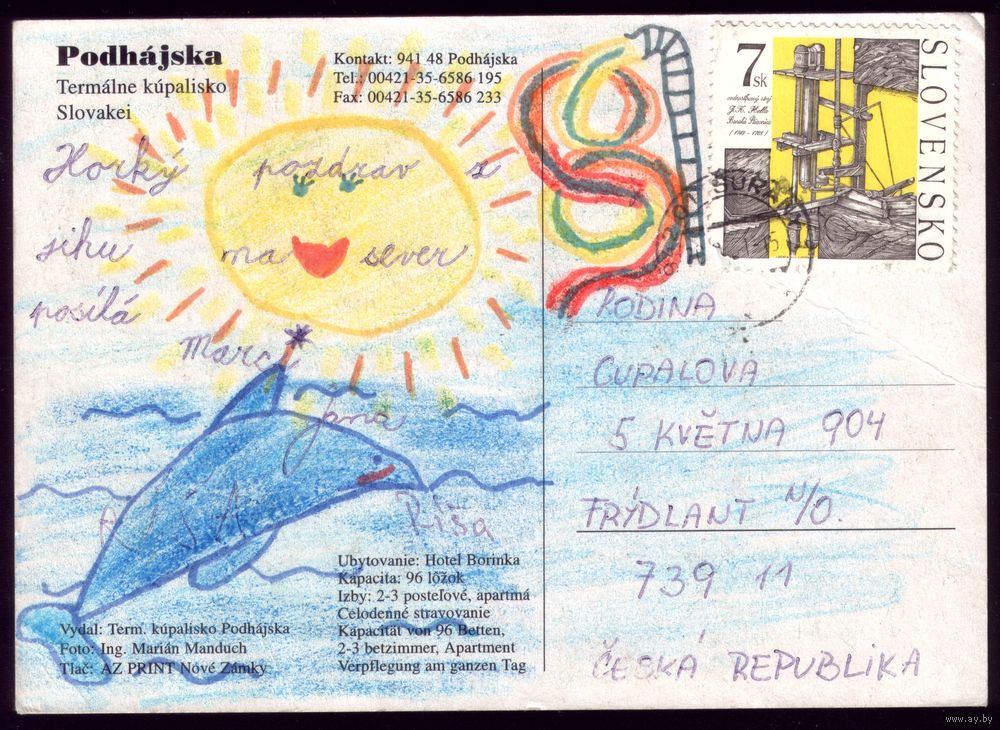 Podhájska
Termálne kúpalisko
Slovakei
Kontakt: 941 48 Podhájska
Tel.: 00421-35-6586 195
Fax: 00421-35-6586 233
Horký pozdrav z
jihu na sever
posílá
Marcj
Jana
Ríša
Ubytovanie: Hotel Borinka
Kapacita: 96 lôžok
Izby: 2-3 posteľové, apartmá
Celodenné stravovanie
Kapacität von 96 Betten,
2-3 betzimmer, Apartment
Verpflegung am ganzen Tag
Vydal: Term. kúpalisko Podhájska
Foto: Ing. Marián Manduch
Tlač: AZ PRINT Nové Zámky
7 Sk
J. K. Hella
Banská Štiavnica
SLOVENSKO
ŠURANY
RODINA
CUPALOVA
5 KVĚTNA 904
FRÝDLANT N/O.
739 11
ČESKÁ REPUBLIKA
www.ay.by